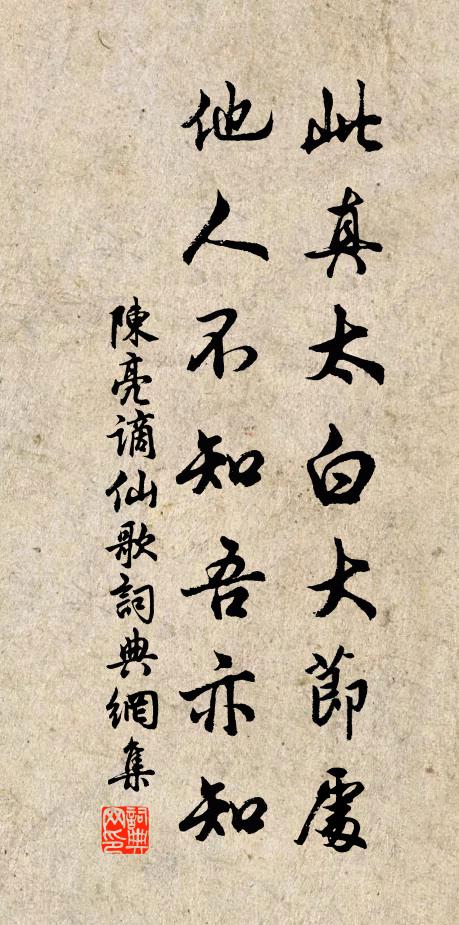 此真太白大節處
他人不知吾亦知
陳亮謫仙歌詞典網集
詞典网印